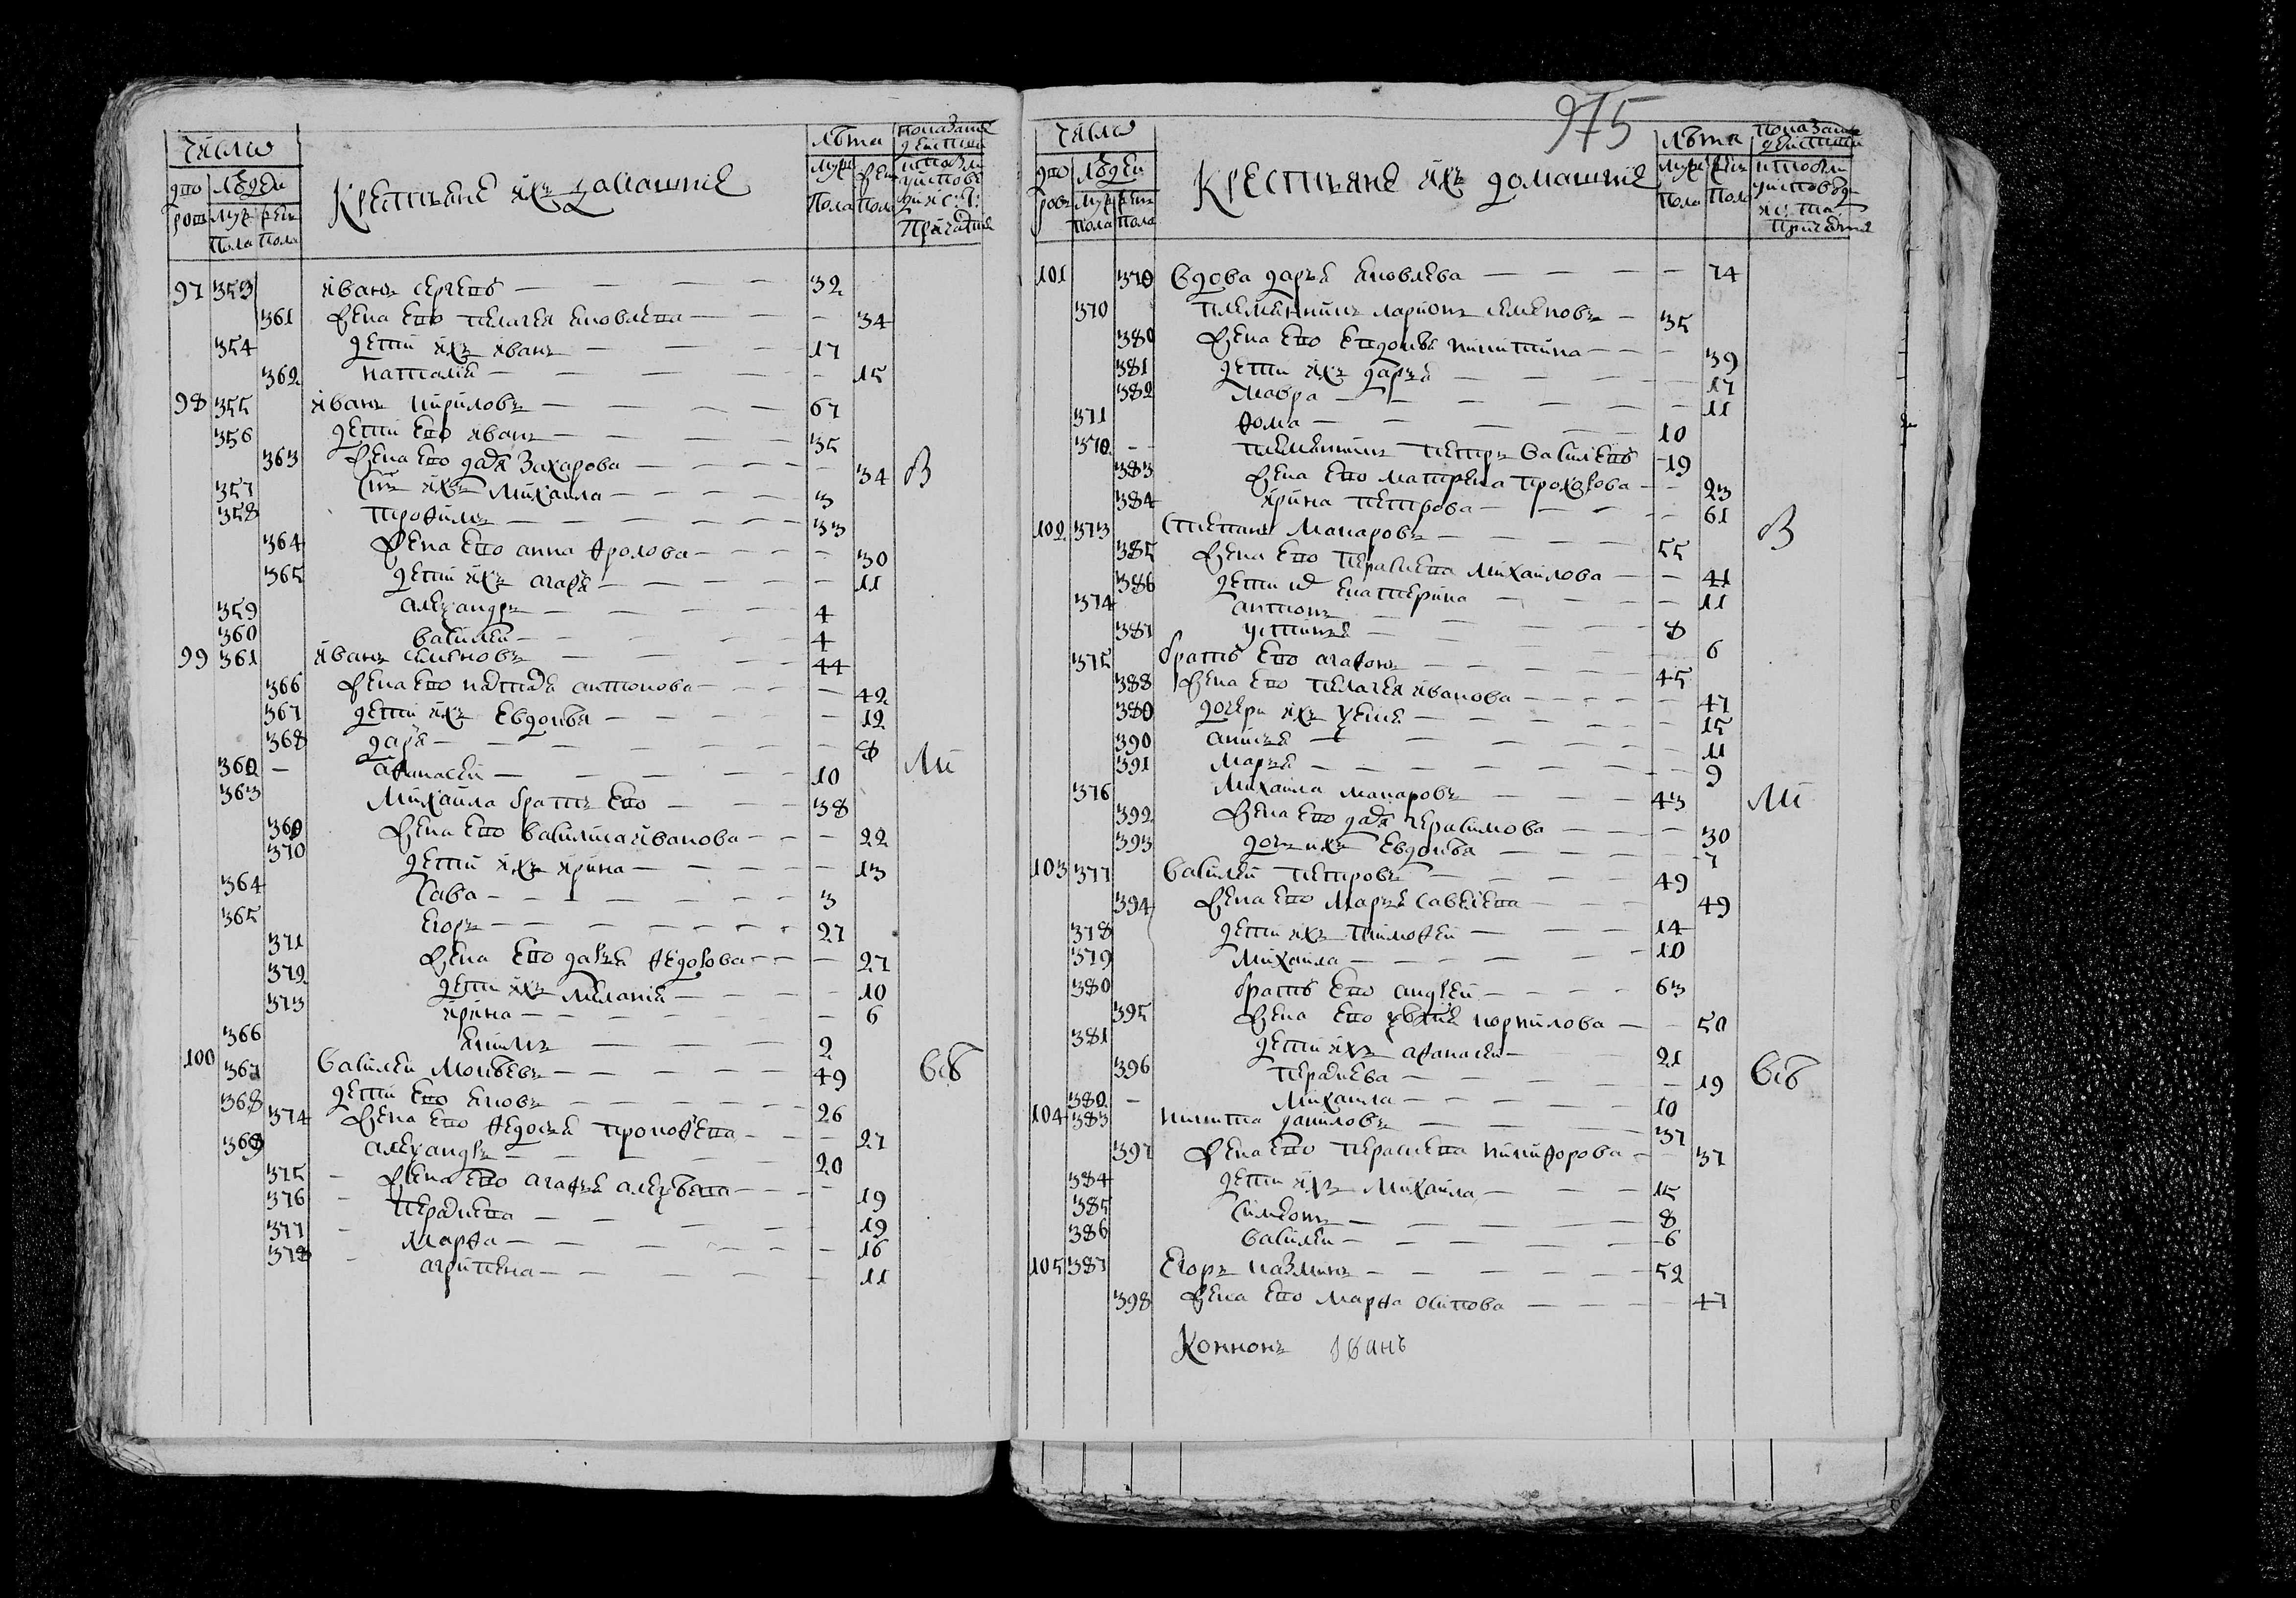 Число
дво ровъ
Людеи
муж: пола
жен: пола
Крестьяне ихъ домашние
Лѣта
муже пола
жен пола
97 353 Иванъ Сергеевъ 32
361 жена его Пелагея Яковлева 34
354 дети ихъ Иванъ 17
362 Наталия 15
98 355 Иванъ Кириловъ 67
356 дети его Иванъ 35
363 жена его Дарья Захарова 34 В
357 Сынъ ихъ Михаила 3
358 Трофимъ 33
364 жена его Анна Фролова 30
365 дети ихъ 11
359 Александръ 4
360 Василеи 4
99 361 Иванъ Семеновъ 44
366 жена его Наталя Антонова 42
367 дети ихъ Евдокѣя 12
368 Даря 8
362 Афанасеи 10
363 Михаила братъ его 38
369 жена его Василиса Иванова 22
370 дети ихъ Ирина 13
364 Сава 3
365 Егоръ 27
371 жена его Дарья Федорова 27
372 дети ихъ Мелания 10
373 Ирина 6
366 Екимъ 2
100 367 Василеи Мокѣевъ 49
368 дети его Яковъ 26
374 жена его Федосья Прокофева 27
369 Александръ 20
375 жена его Агафья Алексѣева 19
376 Парасковья 19
377 Марфа 16
378 Агрипена 11
975
Число
дво ровъ
Людеи
муж: пола
жен: пола
Крестьяне ихъ домашние
Лѣта
муже пола
жен пола
101 379 Вдова Дарья Яковлева 74
370 племянникъ Ларионъ Семеновъ 35
380 жена его Евдокѣя Никитина 39
381 дети ихъ Дарья 17
382 Мавра 11
371 Фома 10
372 племянникъ Петръ Василевъ 19
383 жена его Матрена Прохорова 23
384 Ирина Петрова 61
102 373 Степанъ Макаровъ 55 В
385 жена его Парасковья Михаилова 41
386 дети их Екатерина 11
374 Антонъ 8
387 Устинья 6
375 братъ его Агафонъ 45
388 жена его Пелагея Иванова 47
389 дочери ихъ 15
390 Анисья 11
391 Марья 9
376 Михаила Макаровъ 43
392 жена его Дарья Герасимова 30
393 дочь ихъ Евдокѣя 7
103 377 Василеи Петровъ 49
394 жена его Марья Савелева 49
378 дети ихъ Тимофеи 14
379 Михаила 10
380 братъ его Андреи 63
395 жена его Корнилова 50
381 дети ихъ Афанасеи 21
396 Парасковья 19
382 Михаила 10
104 383 Никита Даниловъ 37
397 жена его Парасковья Никифорова 37
384 дети ихъ Михаила 15
385 Симеонъ 8
386 Василеи 6
105 387 Егоръ Казминъ 52
398 жена его Марфа Осипова 47
Кононъ Иванъ